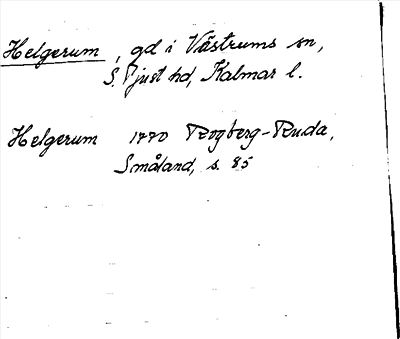 Helgerum, gd i Västrums sn,
S. Tjust hd, Kalmar l.
Helgerum 1770 Rogberg-Ruda,
Småland, s. 85